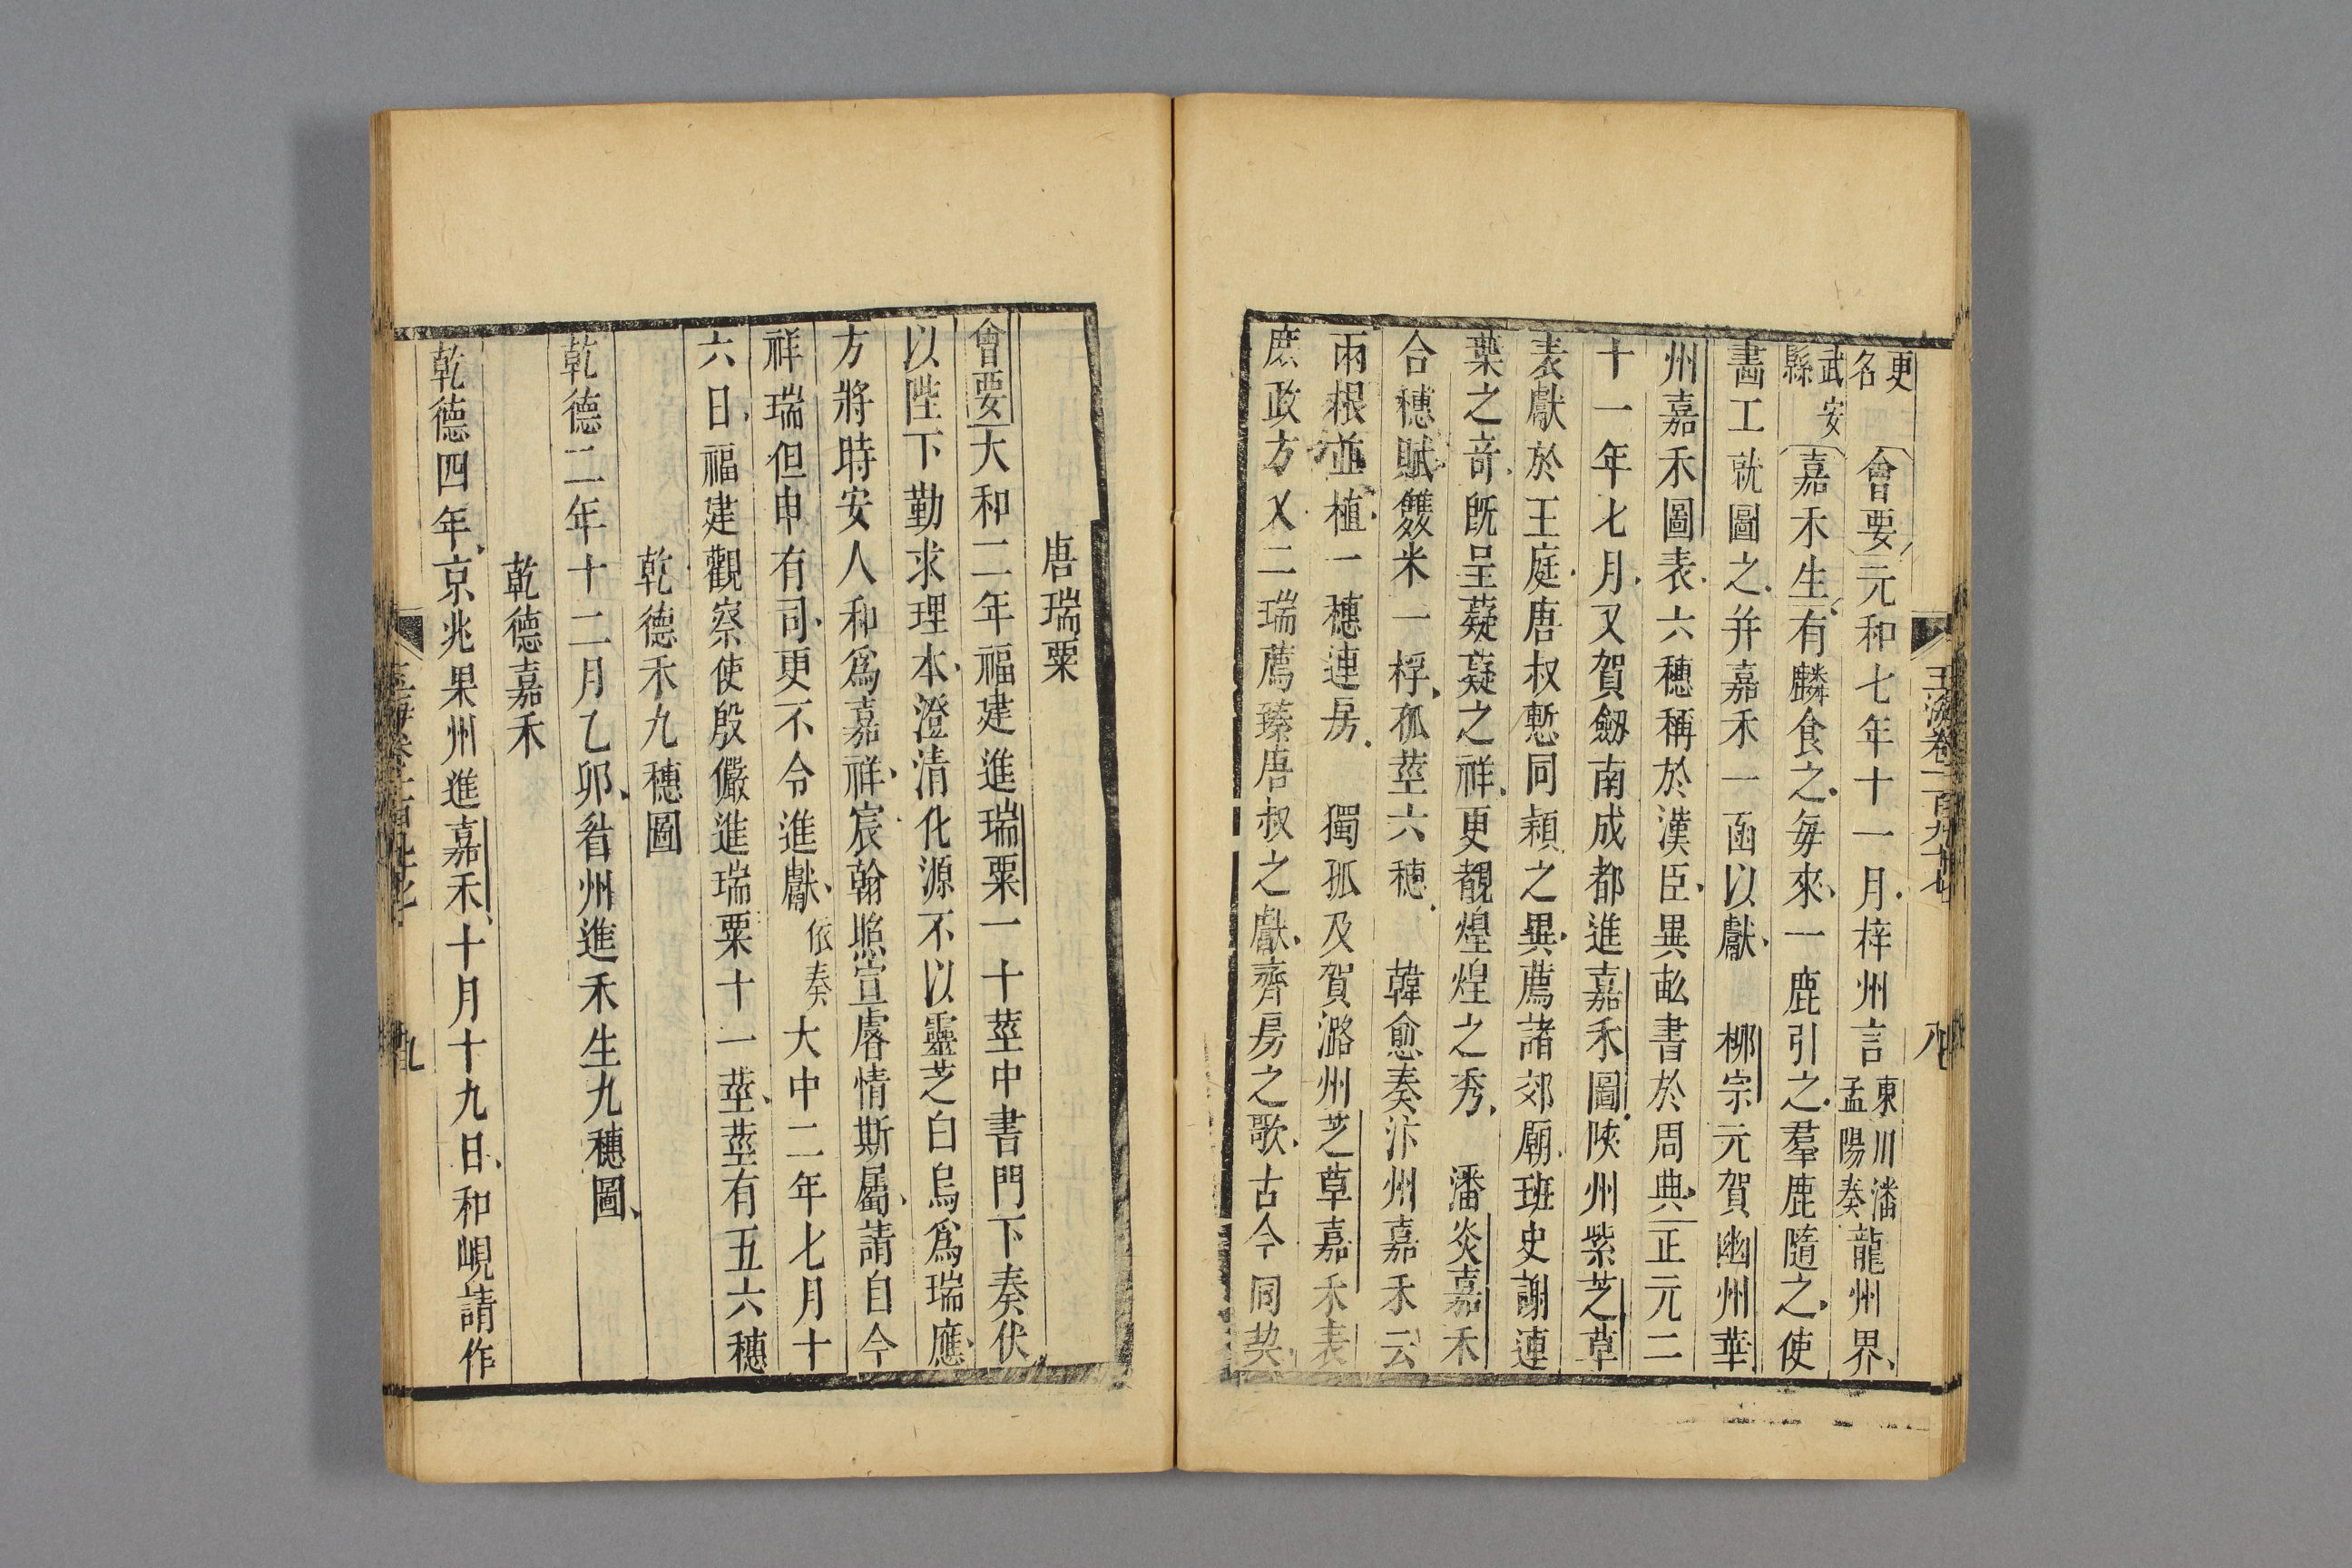 玉海卷一百九十七
八
更名 會要元和七年十一月梓州言東川潘孟陽奏龍州界
武安縣 嘉禾生有麟食之每來一鹿引之羣鹿隨之使
畵工就圖之并嘉禾一函以獻 柳宗元賀幽州華
州嘉禾圖表六穗稱於漢臣異畝書於周典正元二
十一年七月又賀劔南成都進嘉禾圖陝州紫芝草
表獻於王庭唐叔慙同穎之異薦諸郊廟班史謝連
葉之竒旣呈薿薿之祥更覩煌煌之秀 潘炎嘉禾
合穗賦雙米一稃孤莖六穗 韓愈奏汴州嘉禾云
兩根並植一穗連房 獨孤及賀潞州芝草嘉禾表
庶政方乂二瑞薦臻唐叔之獻齊房之歌古今同契
唐瑞粟
會要大和二年福建進瑞粟一十莖中書門下奏伏
以陛下勤求理本澄清化源不以靈芝白烏爲瑞應
方將時安人和爲嘉祥宸翰照宣睿情斯屬請自今
祥瑞但申有司更不令進獻依奏大中二年七月十
六日福建觀察使殷儼進瑞粟十一莖莖有五六穗
乾德禾九穗圖
乾德二年十二月乙卯眷州進禾生九穗圖
乾德嘉禾
乾德四年京兆果州進嘉禾十月十九日和峴請作
九